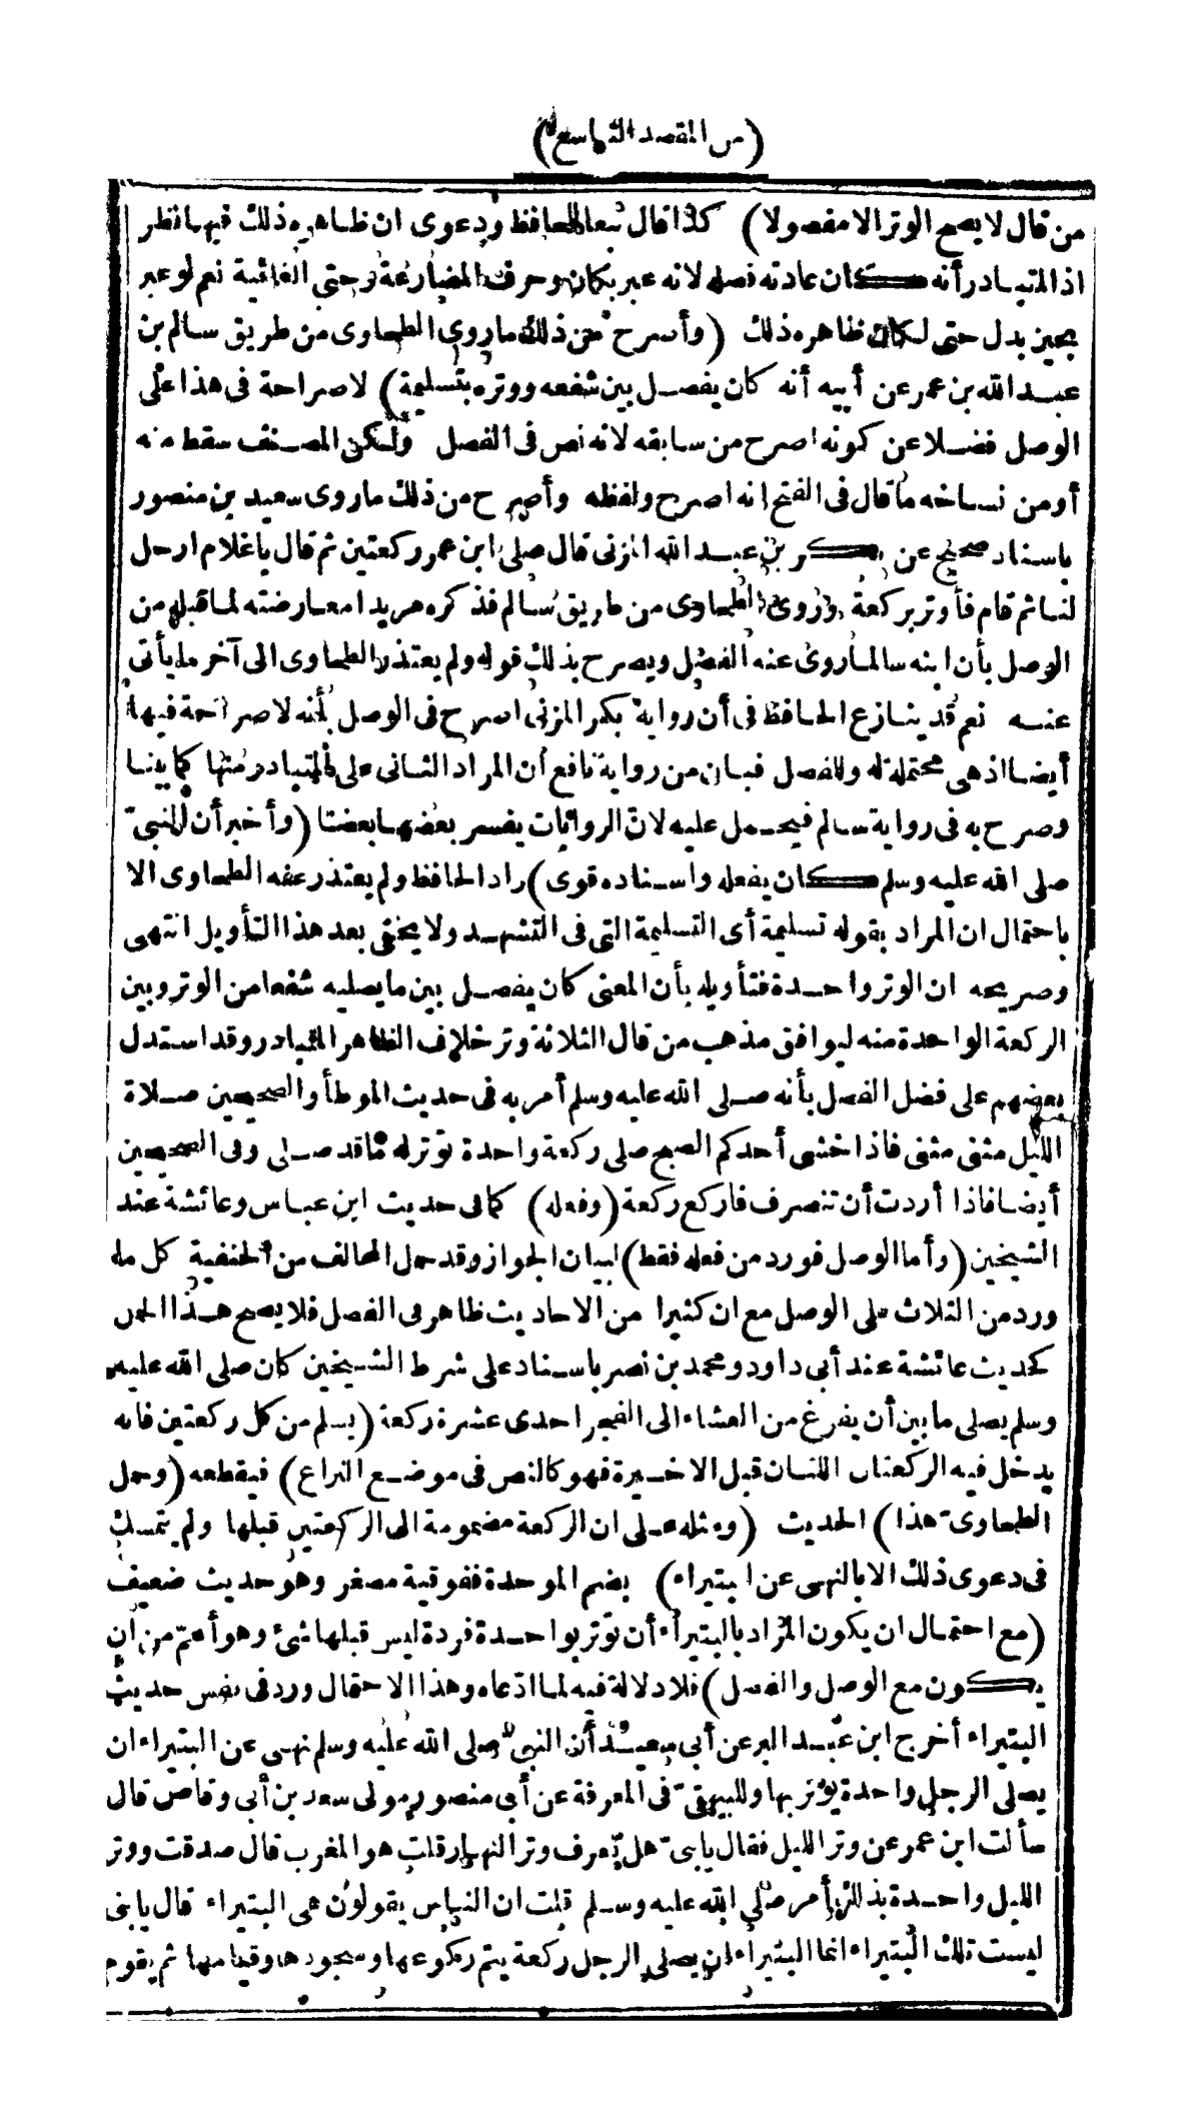 (من المقصد التاسع)
من قال لا يصح الوتر الا مفصولا) كذا قال تبعا للحافظ ودعوى ان ظاهره ذلك فيها نظر
اذ المتبادر أنه كان عادته فصله لانه عبر بكان وحرف المضارعة وحتى الغائية نعم لو عبر
بحين بدل حتى لكان ظاهره ذلك (وأصرح من ذلك ما روى الطحاوى من طريق سالم بن
عبد الله بن عمر عن أبيه أنه كان يفصل بين شفعه ووتره بتسليمة) لا صراحة فى هذا على
الوصل فضلا عن كونه اصرح من سابقه لانه نص فى الفصل ولكن المصنف سقط منه
أو من نساخه ما قال فى الفتح انه اصرح ولفظه وأصرح من ذلك ما روى سعيد بن منصور
باسناد صحيح عن بكر بن عبد الله المزنى قال صلى ابن عمر ركعتين ثم قال يا غلام ارحل
لنا ثم قام فأوتر بركعة وروى الطحاوى من طريق سالم فذكره مريدا معارضته لما قبله من
الوصل بأن ابنه سالما روى عنه الفصل ويصرح بذلك قوله ولم يعتذر الطحاوى الى آخر ما يأتى
عنه نعم قد ينازع الحافظ فى أن رواية بكر المزنى اصرح فى الوصل بأنه لا صراحة فيها
أيضا اذ هى محتملة له وللفصل فبان من رواية نافع أن المراد الثانى على المتبادر منها كما بينا
وصرح به فى رواية سالم فيحمل عليه لان الروايات يفسر بعضها بعضا (وأخبر أن النبى
صلى الله عليه وسلم كان يفعله واسناده قوى) زاد الحافظ ولم يعتذر عنه الطحاوى الا
باحتمال ان المراد بقوله تسليمة أى التسليمة التى فى التشهد ولا يخفى بعد هذا التأويل انتهى
وصريحه ان الوتر واحدة فتأويله بأن المعنى كان يفصل بين ما يصليه شفعا من الوتر وبين
الركعة الواحدة منه ليوافق مذهب من قال الثلاثة وتر خلاف الظاهر المتبادر وقد استدل
بعضهم على فضل الفصل بأنه صلى الله عليه وسلم أمر به فى حديث الموطأ والصحيحين صلاة
الليل مثنى مثنى فاذا خشى أحدكم الصبح صلى ركعة واحدة توتر له ما قد صلى وفى الصحيحين
أيضا فاذا أردت أن تنصرف فاركع ركعة (وفعله) كما فى حديث ابن عباس وعائشة عند
الشيخين (وأما الوصل فورد من فعله فقط) لبيان الجواز وقد حمل المخالف من الحنفية كل ما
ورد من الثلاث على الوصل مع ان كثيرا من الاحاديث ظاهر فى الفصل فلا يصح هذا الحمل
كحديث عائشة عند أبى داود ومحمد بن نصر باسناد على شرط الشيخين كان صلى الله عليه
وسلم يصلى ما بين أن يفرغ من العشاء الى الفجر احدى عشرة ركعة (يسلم من كل ركعتين فانه
يدخل فيه الركعتان اللتان قبل الاخيرة فهو كالنص فى موضع النزاع) فيقطعه (وحمل
الطحاوى هذا) الحديث (ومثله على ان الركعة مضمومة الى الركعتين قبلها ولم يتمسك
فى دعوى ذلك الا بالنهى عن البتيراء) بضم الموحدة ففوقية مصغر وهو حديث ضعيف
(مع احتمال ان يكون المراد بالبتيراء أن توتر بواحدة فردة ليس قبلها شئ وهو أعم من ان
يكون مع الوصل والفصل) فلا دلالة فيه لما ادعاه وهذا الاحتمال ورد فى نفس حديث
البتيراء أخرج ابن عبد البر عن أبى سعيد أن النبى صلى الله عليه وسلم نهى عن البتيراء ان
يصلى الرجل واحدة يوتر بها وللبيهقى فى المعرفة عن أبى منصور مولى سعد بن أبى وقاص قال
سألت ابن عمر عن وتر الليل فقال يا بنى هل تعرف وتر النهار قلت هو المغرب قال صدقت ووتر
الليل واحدة بذلك أمر صلى الله عليه وسلم قلت ان الناس يقولون هى البتيراء قال يا بنى
ليست تلك البتيراء انما البتيراء ان يصلى الرجل ركعة يتم ركوعها وسجودها وقيامها ثم يقوم